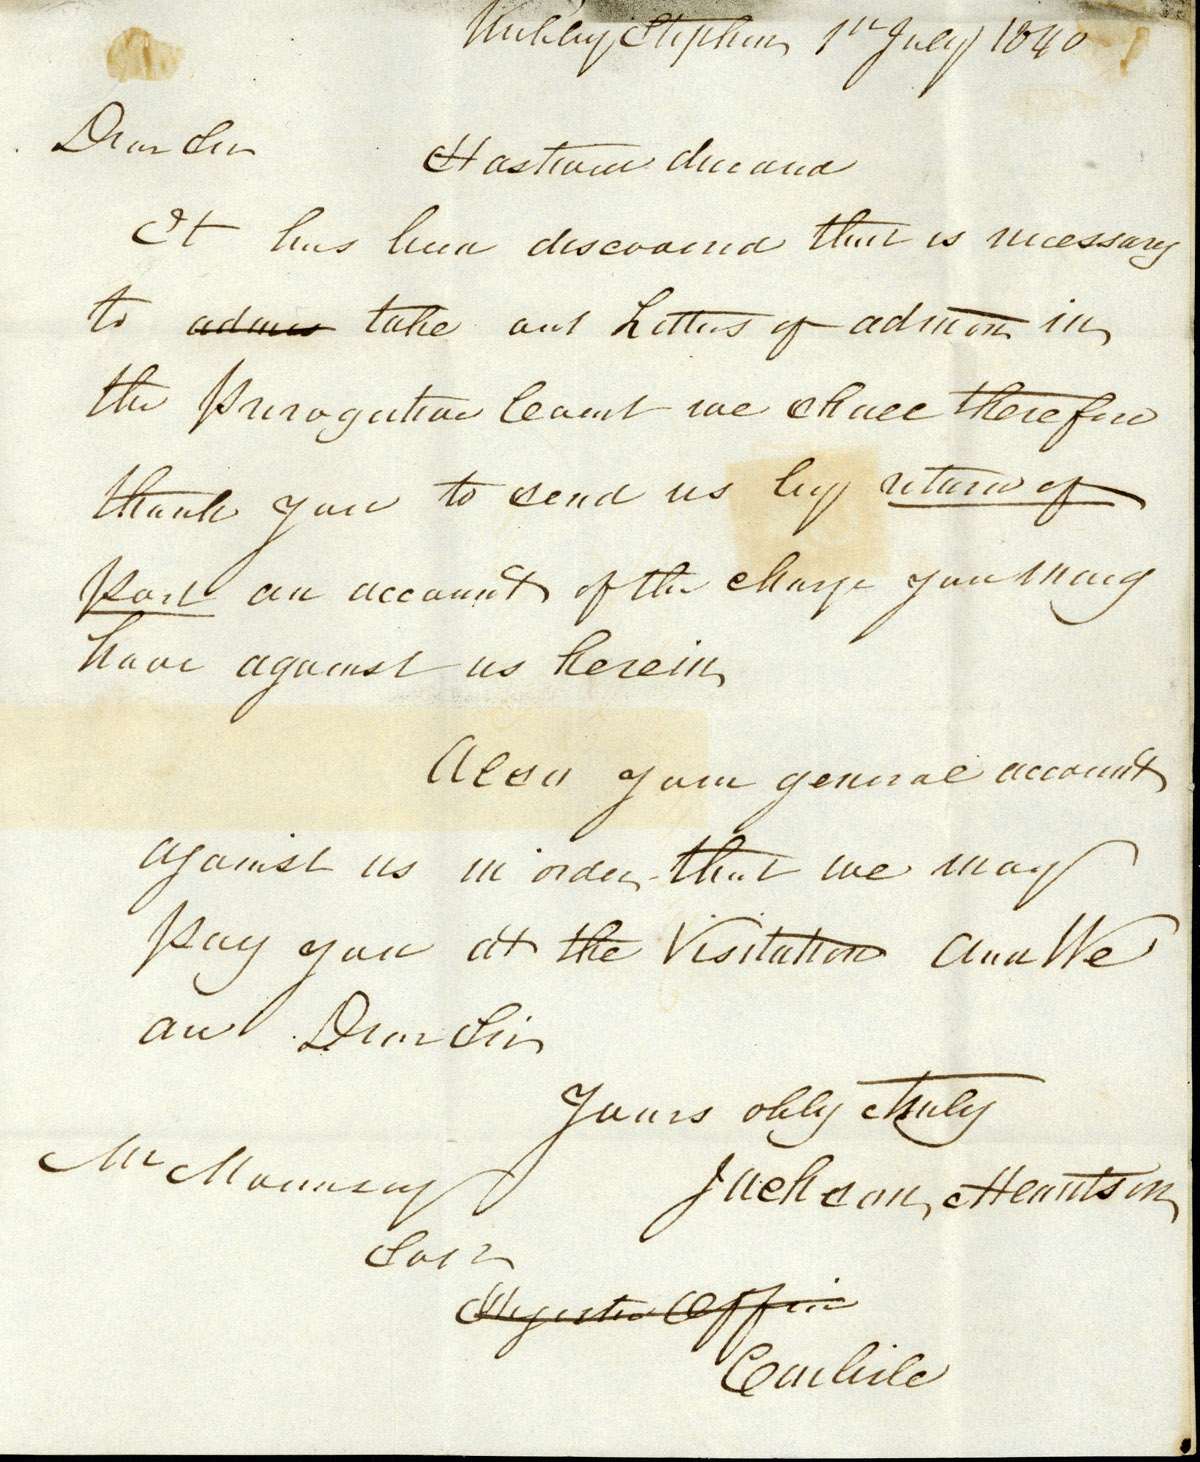 Kirkby Stephen 1st July 1840
Dear Sir
decd
It has been discovered that is necessary
to admi take out Letters of admon in
the Prerogative Court we shall therefore
thank you to send us by return of
Post an account of the charge you may
have against us herein
Also your general account
against us in order that we may
Pay you at the Visitation And We
are Dear Sir
Yours obly & truly
Jackson & Hewitson
Mr Mounsey
Solr
Register Office
Carlisle